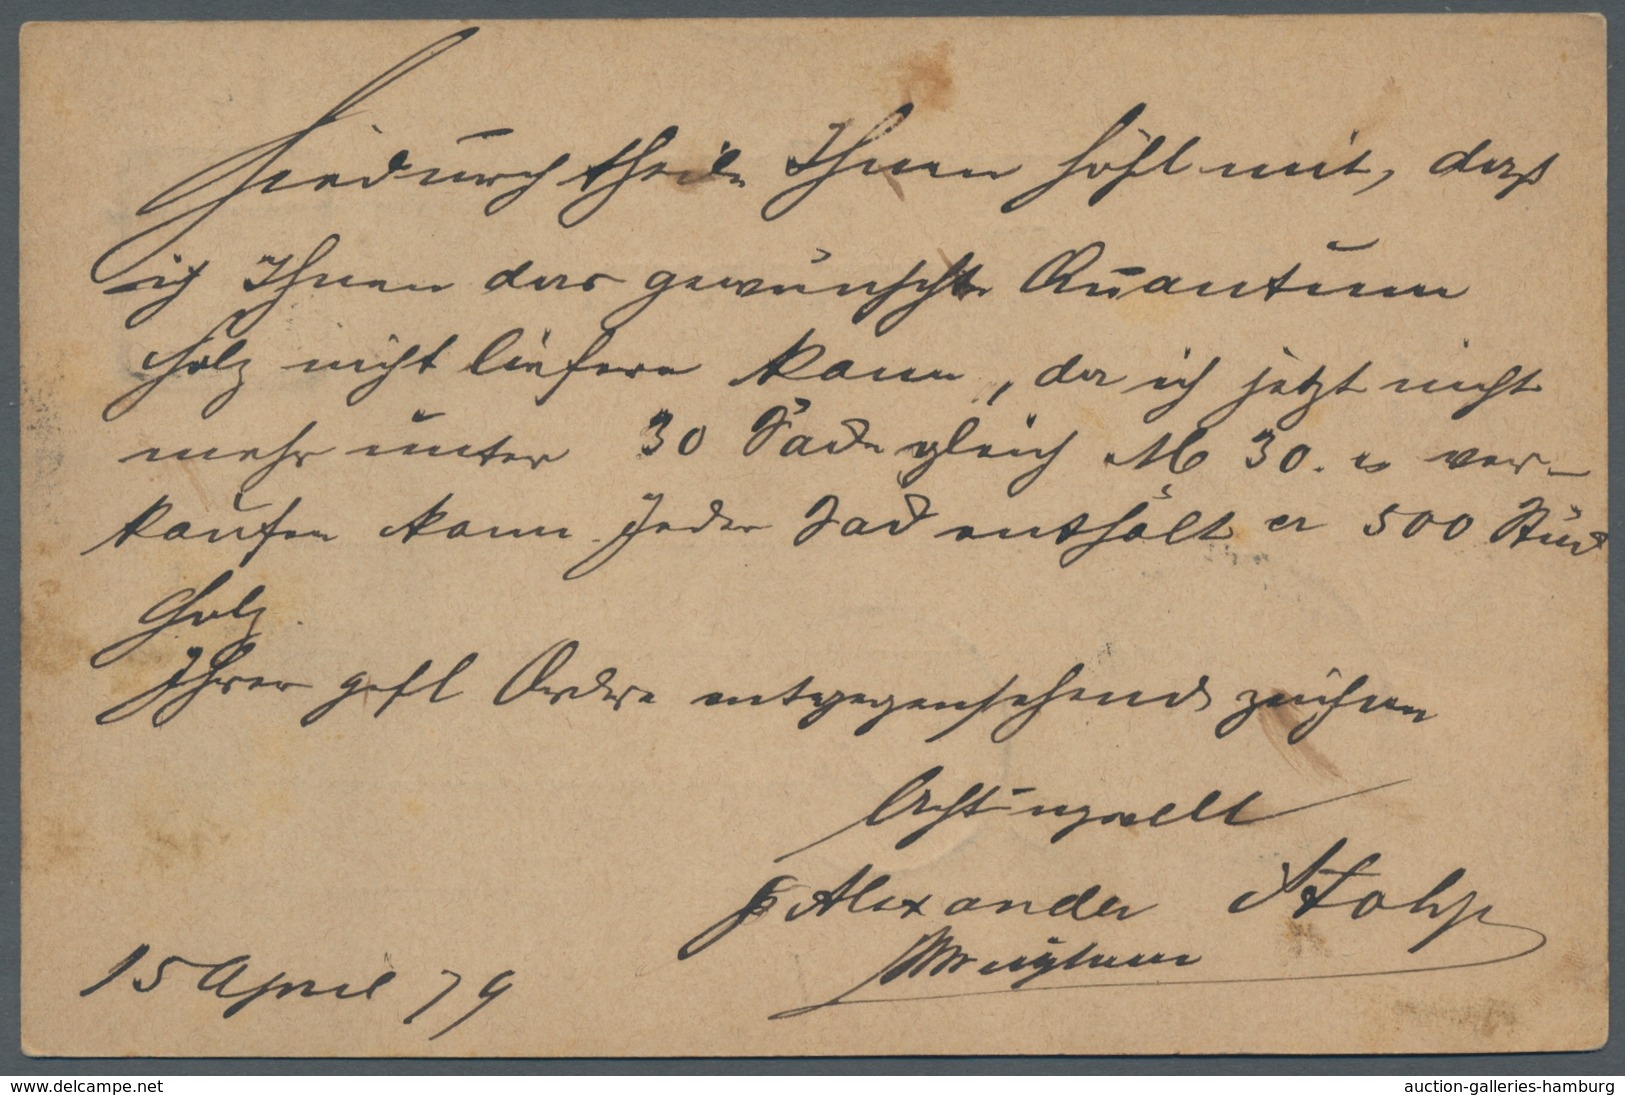 Hiedurch theile Ihnen höfl mit, daß
ich Ihnen das gewünschte Quantum
Holz nicht liefern kann, da ich jetzt nicht
mehr unter 30 gleich M 30. ver-
kaufen kann. Jeder enthält ca 500 Stück
Holz.
Ihrer gefl Ordre entgegensehend zeichne
Achtungsvoll
Alexander
15 April 79
www.delcampe.net
auction-galleries-hamburg